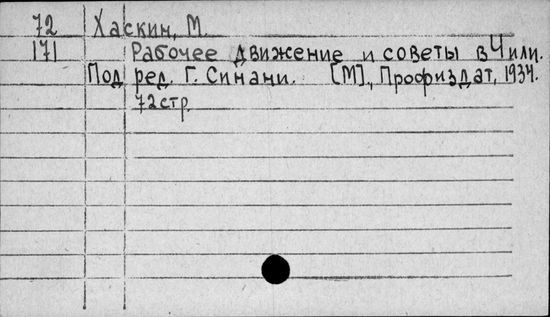 72 Хаскин, М.
171 Рабочее движение и советы в Чили.
Под ред. Г. Синани. [М]., Профиздат, 1934.
72стр.